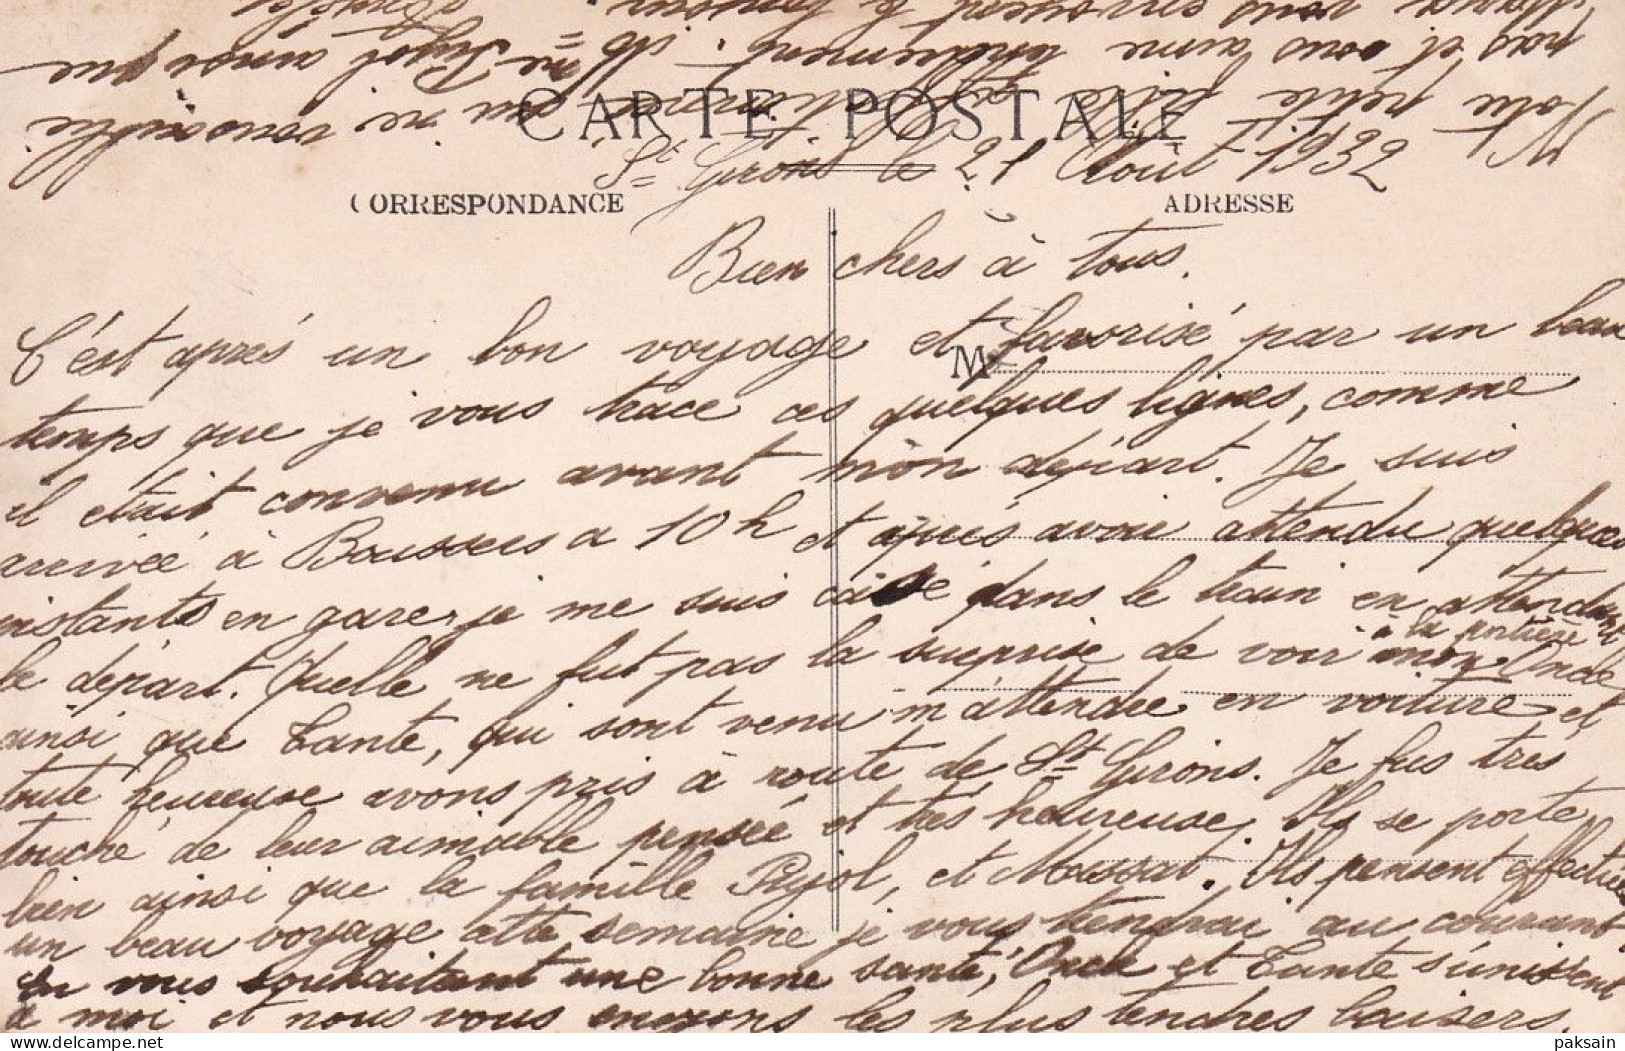 CARTE POSTALE
St Girons le 21 Août 1932
CORRESPONDANCE
ADRESSE
Bien chers à tous.
C'est après un bon voyage et favorisé par un beau
M
temps que je vous trace ces quelques lignes, comme
il était convenu avant mon départ. Je suis
arrivée à Boussens a 10 h et après avoir attendu quelques
instants en gare, je me suis casé dans le train en attendant
à la portière
le départ. Quelle ne fut pas la surprise de voir mon Oncle
ainsi que Tante, qui sont venu m'attendre en voiture et
toute heureuse avons pris à route de St Girons. Je fus très
touché de leur aimable pensée et très heureuse. Ils se porte
bien ainsi que la famille Pujol, et Massat. Ils pensent effectuer
un beau voyage cette semaine je vous tiendrai au courant
En vous souhaitant une bonne santé, Oncle et Tante s'unissent
à moi et nous vous envoyons les plus tendres baisers.
Votre petite fille qui ne vous oublie
pas et vous aime tendrement. Mme Pujol ainsi que
Massat vous envoient le bonjour.
paksain